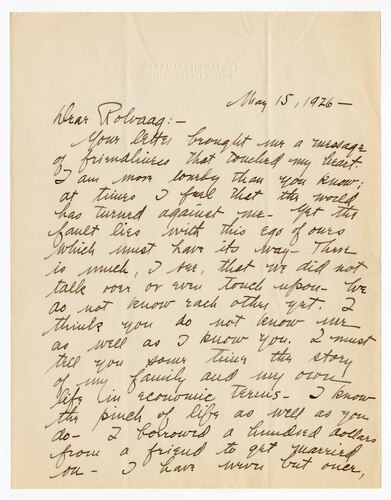 May 15, 1926 —
Dear Rolvaag:—
Your letter brought me a message
of friendliness that touched my heart.
I am more lonely than you know;
at times I feel that the world
has turned against me — Yet the
fault lies with this ego of ours
which must have its way — There
is much, I see, that we did not
talk over or even touch upon — We
do not know each other yet. I
think you do not know me
as well as I know you. I must
tell you some time the story
of my family and my own
life in economic terms — I know
the pinch of life as well as you
do — I borrowed a hundred dollars
from a friend to get married
on — I have never but once,